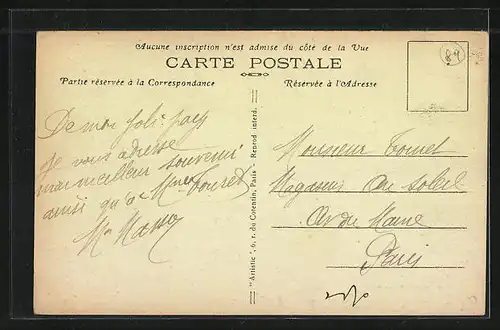 Aucune inscription n'est admise du côté de la Vue
CARTE POSTALE
Partie réservée à la Correspondance
Réservée à l'Adresse
84
De mon joli pays
je vous adresse
mon meilleur souvenir
ainsi qu'à Mme Touret
"Artistic", 6, r. du Cotentin, Paris - Reprod. interd.
Monsieur Touret
Magasins du soleil
Av du Maine
Paris